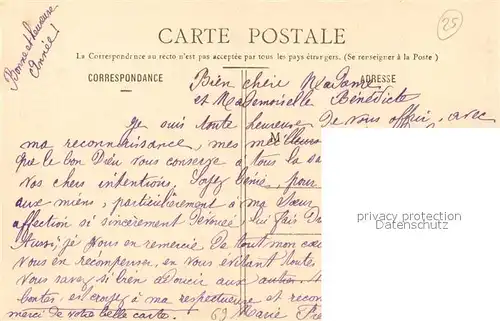 Bonne et heureuse
Année!
25
CARTE POSTALE
La Correspondance au recto n'est pas acceptée par tous les pays étrangers. (Se renseigner à la Poste)
CORRESPONDANCE
ADRESSE
Bien chère Madame
et Mademoiselle Bénédicte
Je suis toute heureuse de vous offrir, avec
M
ma reconnaissance, mes meilleurs
que le bon Dieu vous conserve à tous la
Vos chers intentions. Soyez bénie, pour
aux miens, particulièrement à ma Sœur
affection si sincèrement dévouée, lui fais
Aussi, je vous en remercie de tout mon cœur
vous en récompenser, en vous évitant toute
Vous savez si bien adoucir aux autres.
bontés, est croyez à ma respectueuse et
merci de votre belle carte. 69 Marie
privacy protection
AnsichtskartenPool.de